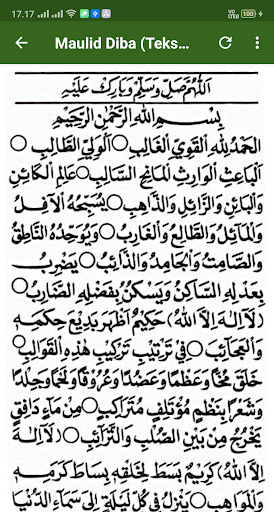 17.17
Maulid Diba (Teks...
100
اَللّٰهُمَّ صَلِّ وَسَلِّمْ وَبَارِكْ عَلَيْهِ
بِسْمِ اللهِ الرَّحْمٰنِ الرَّحِيْمِ
اَلْحَمْدُ لِلّٰهِ الْقَوِيِّ الْغَالِبِ ○ اَلْوَلِيِّ الطَّالِبِ ○
اَلْبَاعِثِ الْوَارِثِ الْمَانِحِ السَّالِبِ ○ عَالِمِ الْكَائِنِ
وَالْبَائِنِ وَالزَّائِلِ وَالذَّاهِبِ ○ يُسَبِّحُهُ الْاٰفِلُ
وَالْمَائِلُ وَالطَّالِعُ وَالْغَارِبُ ○ وَيُوَحِّدُهُ النَّاطِقُ
وَالصَّامِتُ وَالْجَامِدُ وَالذَّائِبُ ○ يَضْرِبُ
بِعَدْلِهِ السَّاكِنُ وَيَسْكُنُ بِفَضْلِهِ الضَّارِبُ ○
(لَا اِلٰهَ اِلَّا اللهُ) حَكِيْمٌ اَظْهَرَ بَدِيْعَ حِكَمِهِ
وَالْعَجَائِبَ ○ فِيْ تَرْتِيْبِ تَرْكِيْبِ هٰذِهِ الْقَوَالِبِ ○
خَلَقَ مُخًّا وَعَظْمًا وَعَضُدًا وَعُرُوْقًا وَلَحْمًا وَجِلْدًا
وَشَعْرًا بِنَظْمٍ مُؤْتَلِفٍ مُتَرَاكِبٍ ○ مِنْ مَاءٍ دَافِقٍ
يَخْرُجُ مِنْ بَيْنِ الصُّلْبِ وَالتَّرَائِبِ ○ (لَا اِلٰهَ
اِلَّا اللهُ) كَرِيْمٌ بَسَطَ لِخَلْقِهِ بِسَاطَ كَرَمِهِ
وَالْمَوَاهِبِ ○ يَنْزِلُ فِيْ كُلِّ لَيْلَةٍ اِلٰى سَمَاءِ الدُّنْيَا